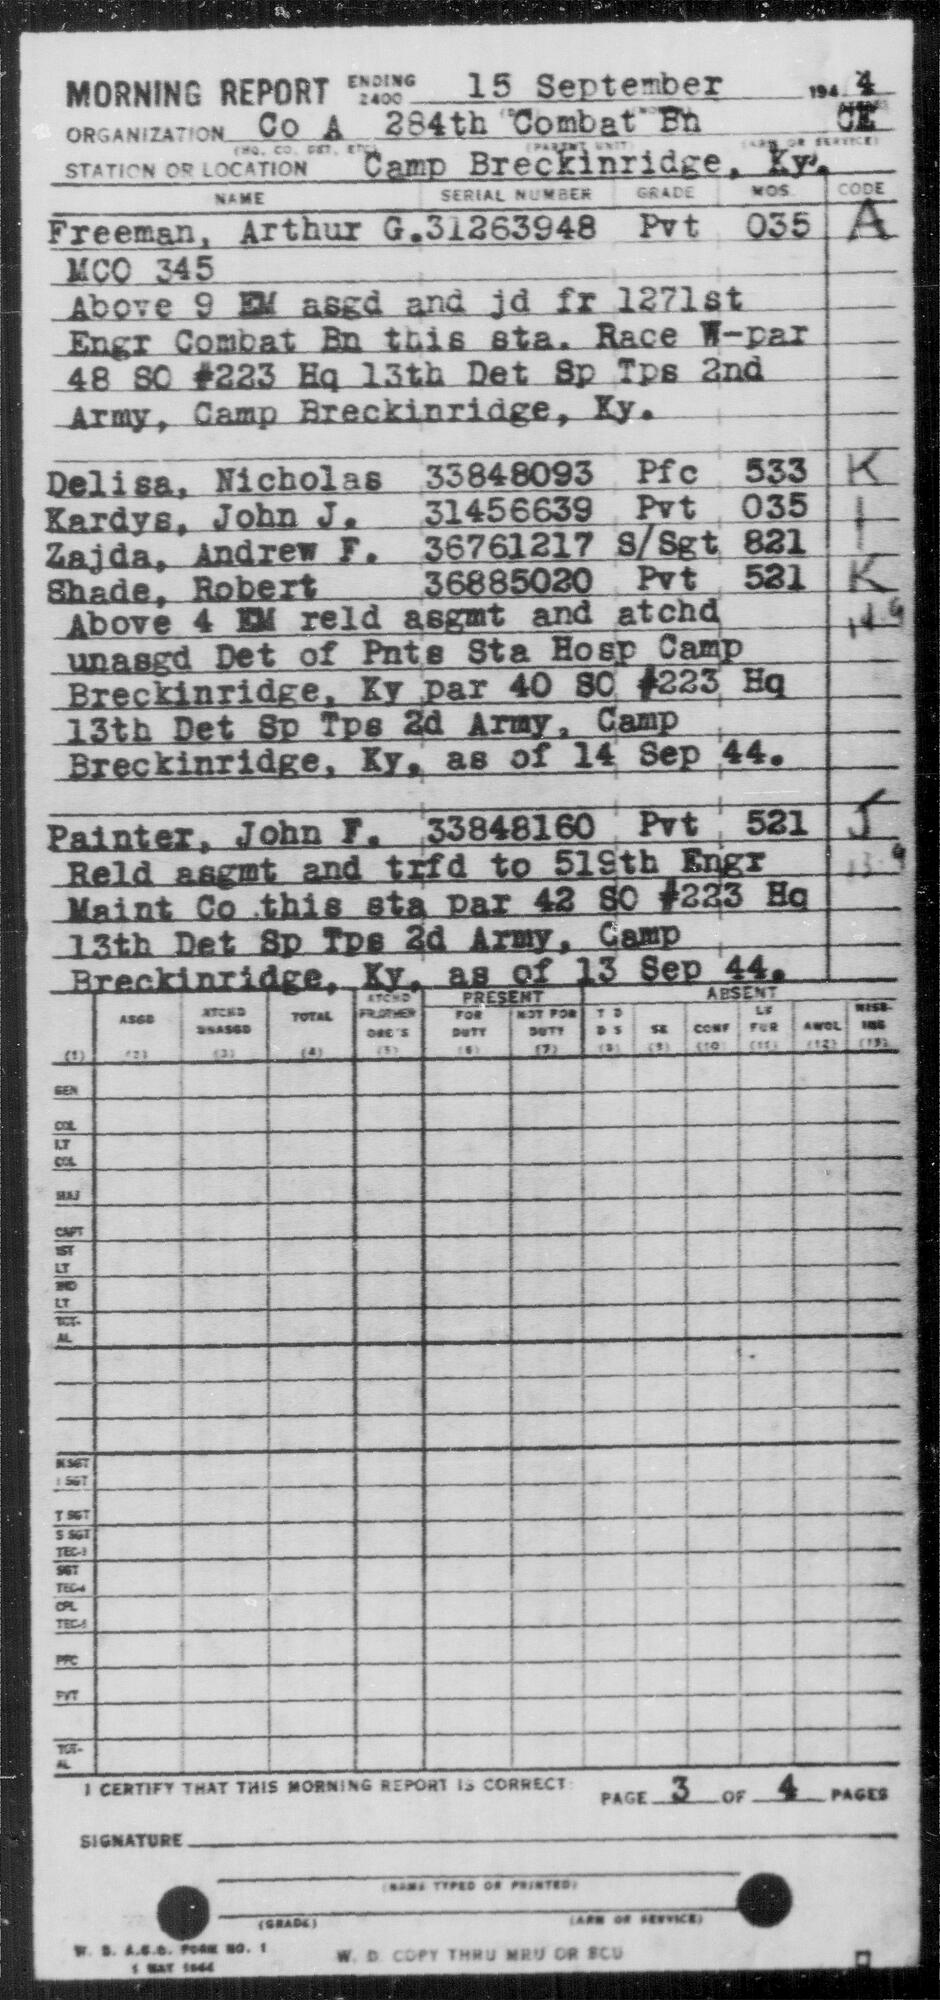 MORNING REPORT ENDING 2400 15 September 194 4
ORGANIZATION Co A 284th Combat Bn CE
(HQ, CO, DET, ETC) (PARENT UNIT) (ARM OR SERVICE)
STATION OR LOCATION Camp Breckinridge, Ky.
NAME SERIAL NUMBER GRADE MOS. CODE
Freeman, Arthur G. 31263948 Pvt 035 A
MCO 345
Above 9 EM asgd and jd fr 1271st
Engr Combat Bn this sta. Race W-par
48 SO #223 Hq 13th Det Sp Tps 2nd
Army, Camp Breckinridge, Ky.
Delisa, Nicholas 33848093 Pfc 533 K
Kardys, John J. 31456639 Pvt 035 |
Zajda, Andrew F. 36761217 S/Sgt 821
Shade, Robert 36885020 Pvt 521 K
Above 4 EM reld asgmt and atchd 14 9
unasgd Det of Pnts Sta Hosp Camp
Breckinridge, Ky par 40 SO #223 Hq
13th Det Sp Tps 2d Army, Camp
Breckinridge, Ky, as of 14 Sep 44.
Painter, John F. 33848160 Pvt 521 J
Reld asgmt and trfd to 519th Engr 13-9
Maint Co this sta par 42 SO #223 Hq
13th Det Sp Tps 2d Army, Camp
Breckinridge, Ky, as of 13 Sep 44.
PRESENT ABSENT
ASGD ATCHD UNASGD TOTAL ATCHD FR.OTHER ORG'S FOR DUTY NOT FOR DUTY T D D S SK CONF LV FUR AWOL MISSING
(1) (2) (3) (4) (5) (6) (7) (8) (9) (10) (11) (12) (13)
GEN
COL
LT
COL
MAJ
CAPT
1ST
LT
2ND
LT
TOT-
AL
M SGT
1 SGT
T SGT
S SGT
TEC-3
SGT
TEC-4
CPL
TEC-5
PFC
PVT
TOT-
AL
I CERTIFY THAT THIS MORNING REPORT IS CORRECT:
PAGE 3 OF 4 PAGES
SIGNATURE
(NAME TYPED OR PRINTED)
(GRADE) (ARM OR SERVICE)
W. D. A.G.O. FORM NO. 1
1 MAY 1944
W. D. COPY THRU MRU OR SCU